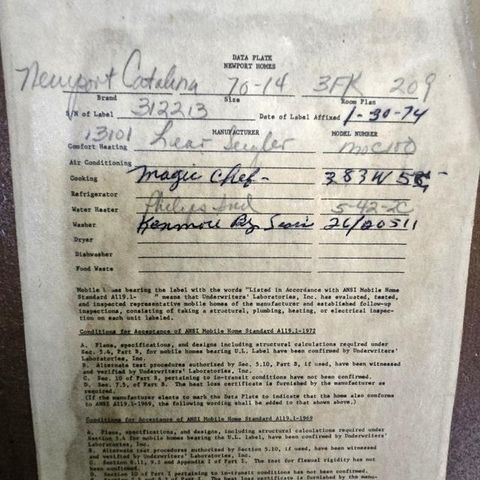 DATA PLATE
NEWPORT HOMES
Newport Catalina 70-14 3FK 209
Brand Size Room Plan
S/N of Label 312213 Date of Label Affixed 1-30-74
13101 MANUFACTURER MODEL NUMBER
Comfort Heating Lear Seigler
Air Conditioning
Cooking Magic Chef 383W
Refrigerator
Water Heater Philips Ind 5-42-2C
Washer Kenmore By Sears 26/20511
Dryer
Dishwasher
Food Waste
Mobile homes bearing the label with the words "Listed in Accordance with ANSI Mobile Home
Standard A119.1- " means that Underwriters' Laboratories, Inc. has evaluated, tested,
and inspected representative mobile homes of the manufacturer and established follow-up
inspections, consisting of taking a structural, plumbing, heating, or electrical inspec-
tion on each unit labeled.
Conditions for Acceptance of ANSI Mobile Home Standard A119.1-1972
A. Plans, specifications, and designs including structural calculations required under
Sec. 5.4, Part B, for mobile homes bearing U.L. Label have been confirmed by Underwriters'
Laboratories, Inc.
B. Alternate test procedures authorized by Sec. 5.10, Part B, if used, have been witnessed
and verified by Underwriters' Laboratories, Inc.
C. Sec. 10 of Part B, pertaining to in-transit conditions have not been confirmed.
D. Sec. 7.5, of Part B. The heat loss certificate is furnished by the manufacturer as
required.
(If the manufacturer elects to mark the Data Plate to indicate that the home also conforms
to ANSI A119.1-1969, the following wording shall be added to that shown above.)
Conditions for Acceptance of ANSI Mobile Home Standard A119.1-1969
A. Plans, specifications, and designs, including structural calculations required under
Section 5.4 for mobile homes bearing the U.L. label, have been confirmed by Underwriters'
Laboratories, Inc.
B. Alternate test procedures authorized by Section 5.10, if used, have been witnessed
and verified by Underwriters' Laboratories, Inc.
C. Section 6.11, 9.2 and Appendix I of Part I. The test for flexual rigidity has not
been confirmed.
D. Section 10 of Part I pertaining to in-transit conditions has not been confirmed.